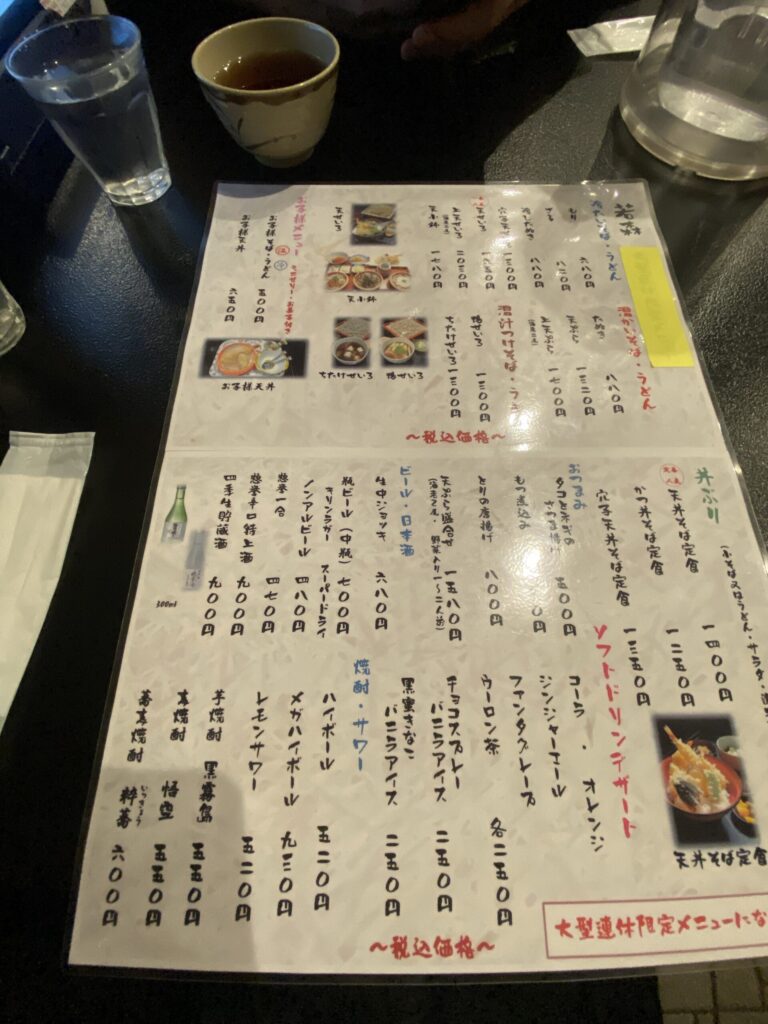 冷たいそば・うどん
もり 六八〇円
ざる
八三〇円
冷したぬき 八八〇円
穴子天せいろ 一三〇〇円
天せいろ
上天せいろ
天小鉢 一七八〇円
温かいそば・うどん
たぬき 八八〇円
天ぷら
上天ぷら
温汁つけそば・う
鴨せいろ 一三〇〇円
ちたけせいろ 一三〇〇円
天せいろ
天小鉢
鴨せいろ
ちたけせいろ
お子様メニュー
お子様そば・うどん 五〇〇円
お子様天丼 六五〇円
お子様天丼
〜税込価格〜
丼ぶり
天丼そば定食 一四〇〇円
かつ丼そば定食 一二五〇円
穴子天丼そば定食 一三五〇円
おつまみ
タコと
さつま揚げ 五〇〇円
もつ煮込み
とりの唐揚げ 八〇〇円
天ぷら盛合せ 一五八〇円
ビール・日本酒
生中ジョッキ 六八〇円
瓶ビール(中瓶) 七〇〇円
キリンラガー スーパードライ
ノンアルビール 四八〇円
惣誉一合 四七〇円
惣誉辛口特上酒 九〇〇円
四季生貯蔵酒 九〇〇円
300ml
ソフトドリンクデザート
コーラ・オレンジ
ジンジャーエール
ファンタグレープ
ウーロン茶 各二五〇円
チョコスプレー
バニラアイス 二五〇円
黒蜜きなこ
バニラアイス 二五〇円
焼酎・サワー
ハイボール 五二〇円
メガハイボール 九三〇円
レモンサワー 五二〇円
芋焼酎 黒霧島 五五〇円
麦焼酎 悟空 五五〇円
蕎麦焼酎 粋蕎 六〇〇円
いっきょう
天丼そば定食
大型連休限定メニューにな
〜税込価格〜